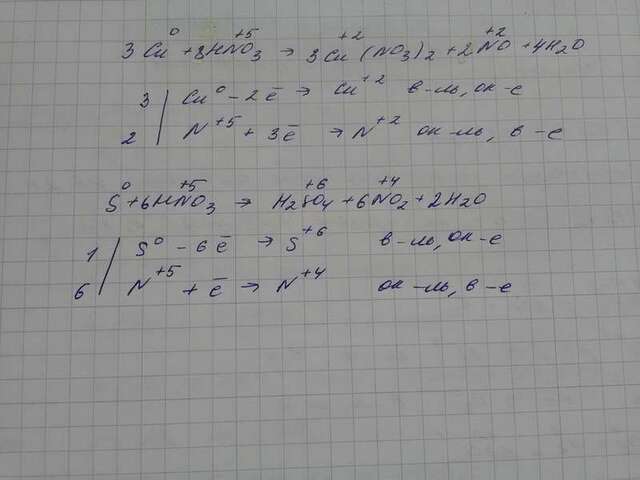 3Cu⁰ + 8HN⁺⁵O3 → 3Cu⁺²(NO3)2 + 2N⁺²O + 4H2O
3 | Cu⁰ - 2ē → Cu⁺² в-ль, ок-е
2 | N⁺⁵ + 3ē → N⁺² ок-ль, в-е
S⁰ + 6HN⁺⁵O3 → H2S⁺⁶O4 + 6N⁺⁴O2 + 2H2O
1 | S⁰ - 6ē → S⁺⁶ в-ль, ок-е
6 | N⁺⁵ + ē → N⁺⁴ ок-ль, в-е